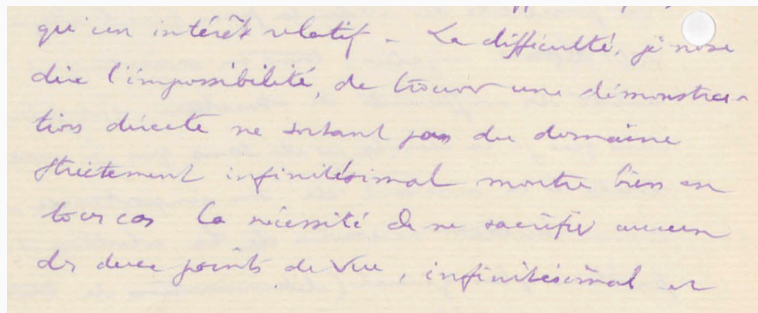 qu'un intérêt relatif - La difficulté, je n'ose
dire l'impossibilité, de trouver une démonstra-
tion directe ne sortant pas du domaine
strictement infinitésimal montre bien en
tous cas la nécessité de ne sacrifier aucun
des deux points de vue, infinitésimal et